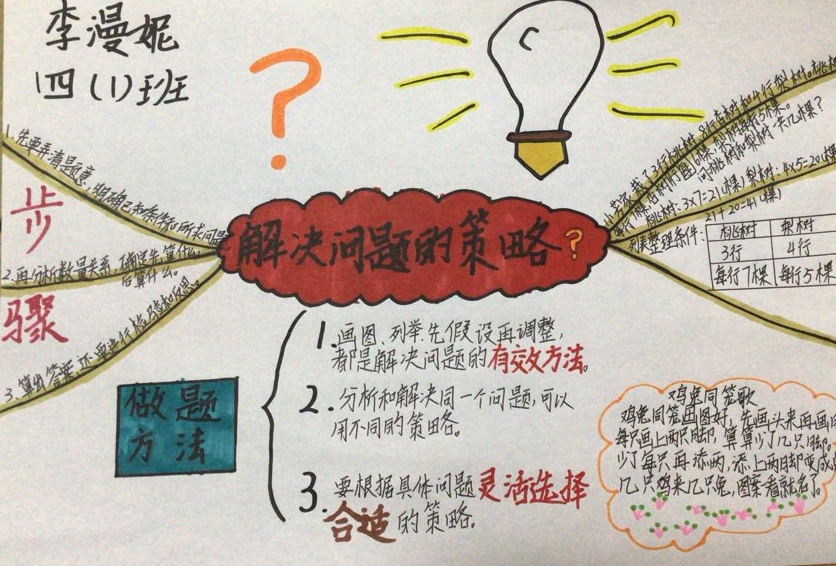 李漫妮
四(1)班
?
步
骤
1.先要弄清题意,明确已知条件和所求问题
2.再分析数量关系,确定先算什么,
后算什么。
3.算出答案,还要进行检验和反思。
解决问题的策略?
做题
方法
1.画图、列举、先假设再调整,
都是解决问题的有效方法。
2.分析和解决同一个问题,可以
用不同的策略。
3.要根据具体问题灵活选择
合适的策略。
桃树:3×7=21(棵) 梨树:4×5=20(棵)
21+20=41(棵)
列表整理条件:
桃树 梨树
3行 4行
每行7棵 每行5棵
鸡兔同笼歌
鸡兔同笼画图好,先画头来再画
每只画上两只脚,算算少了几只脚。
少了每只再添两,添上两脚变成
几只鸡来几只兔,图案看就知了。